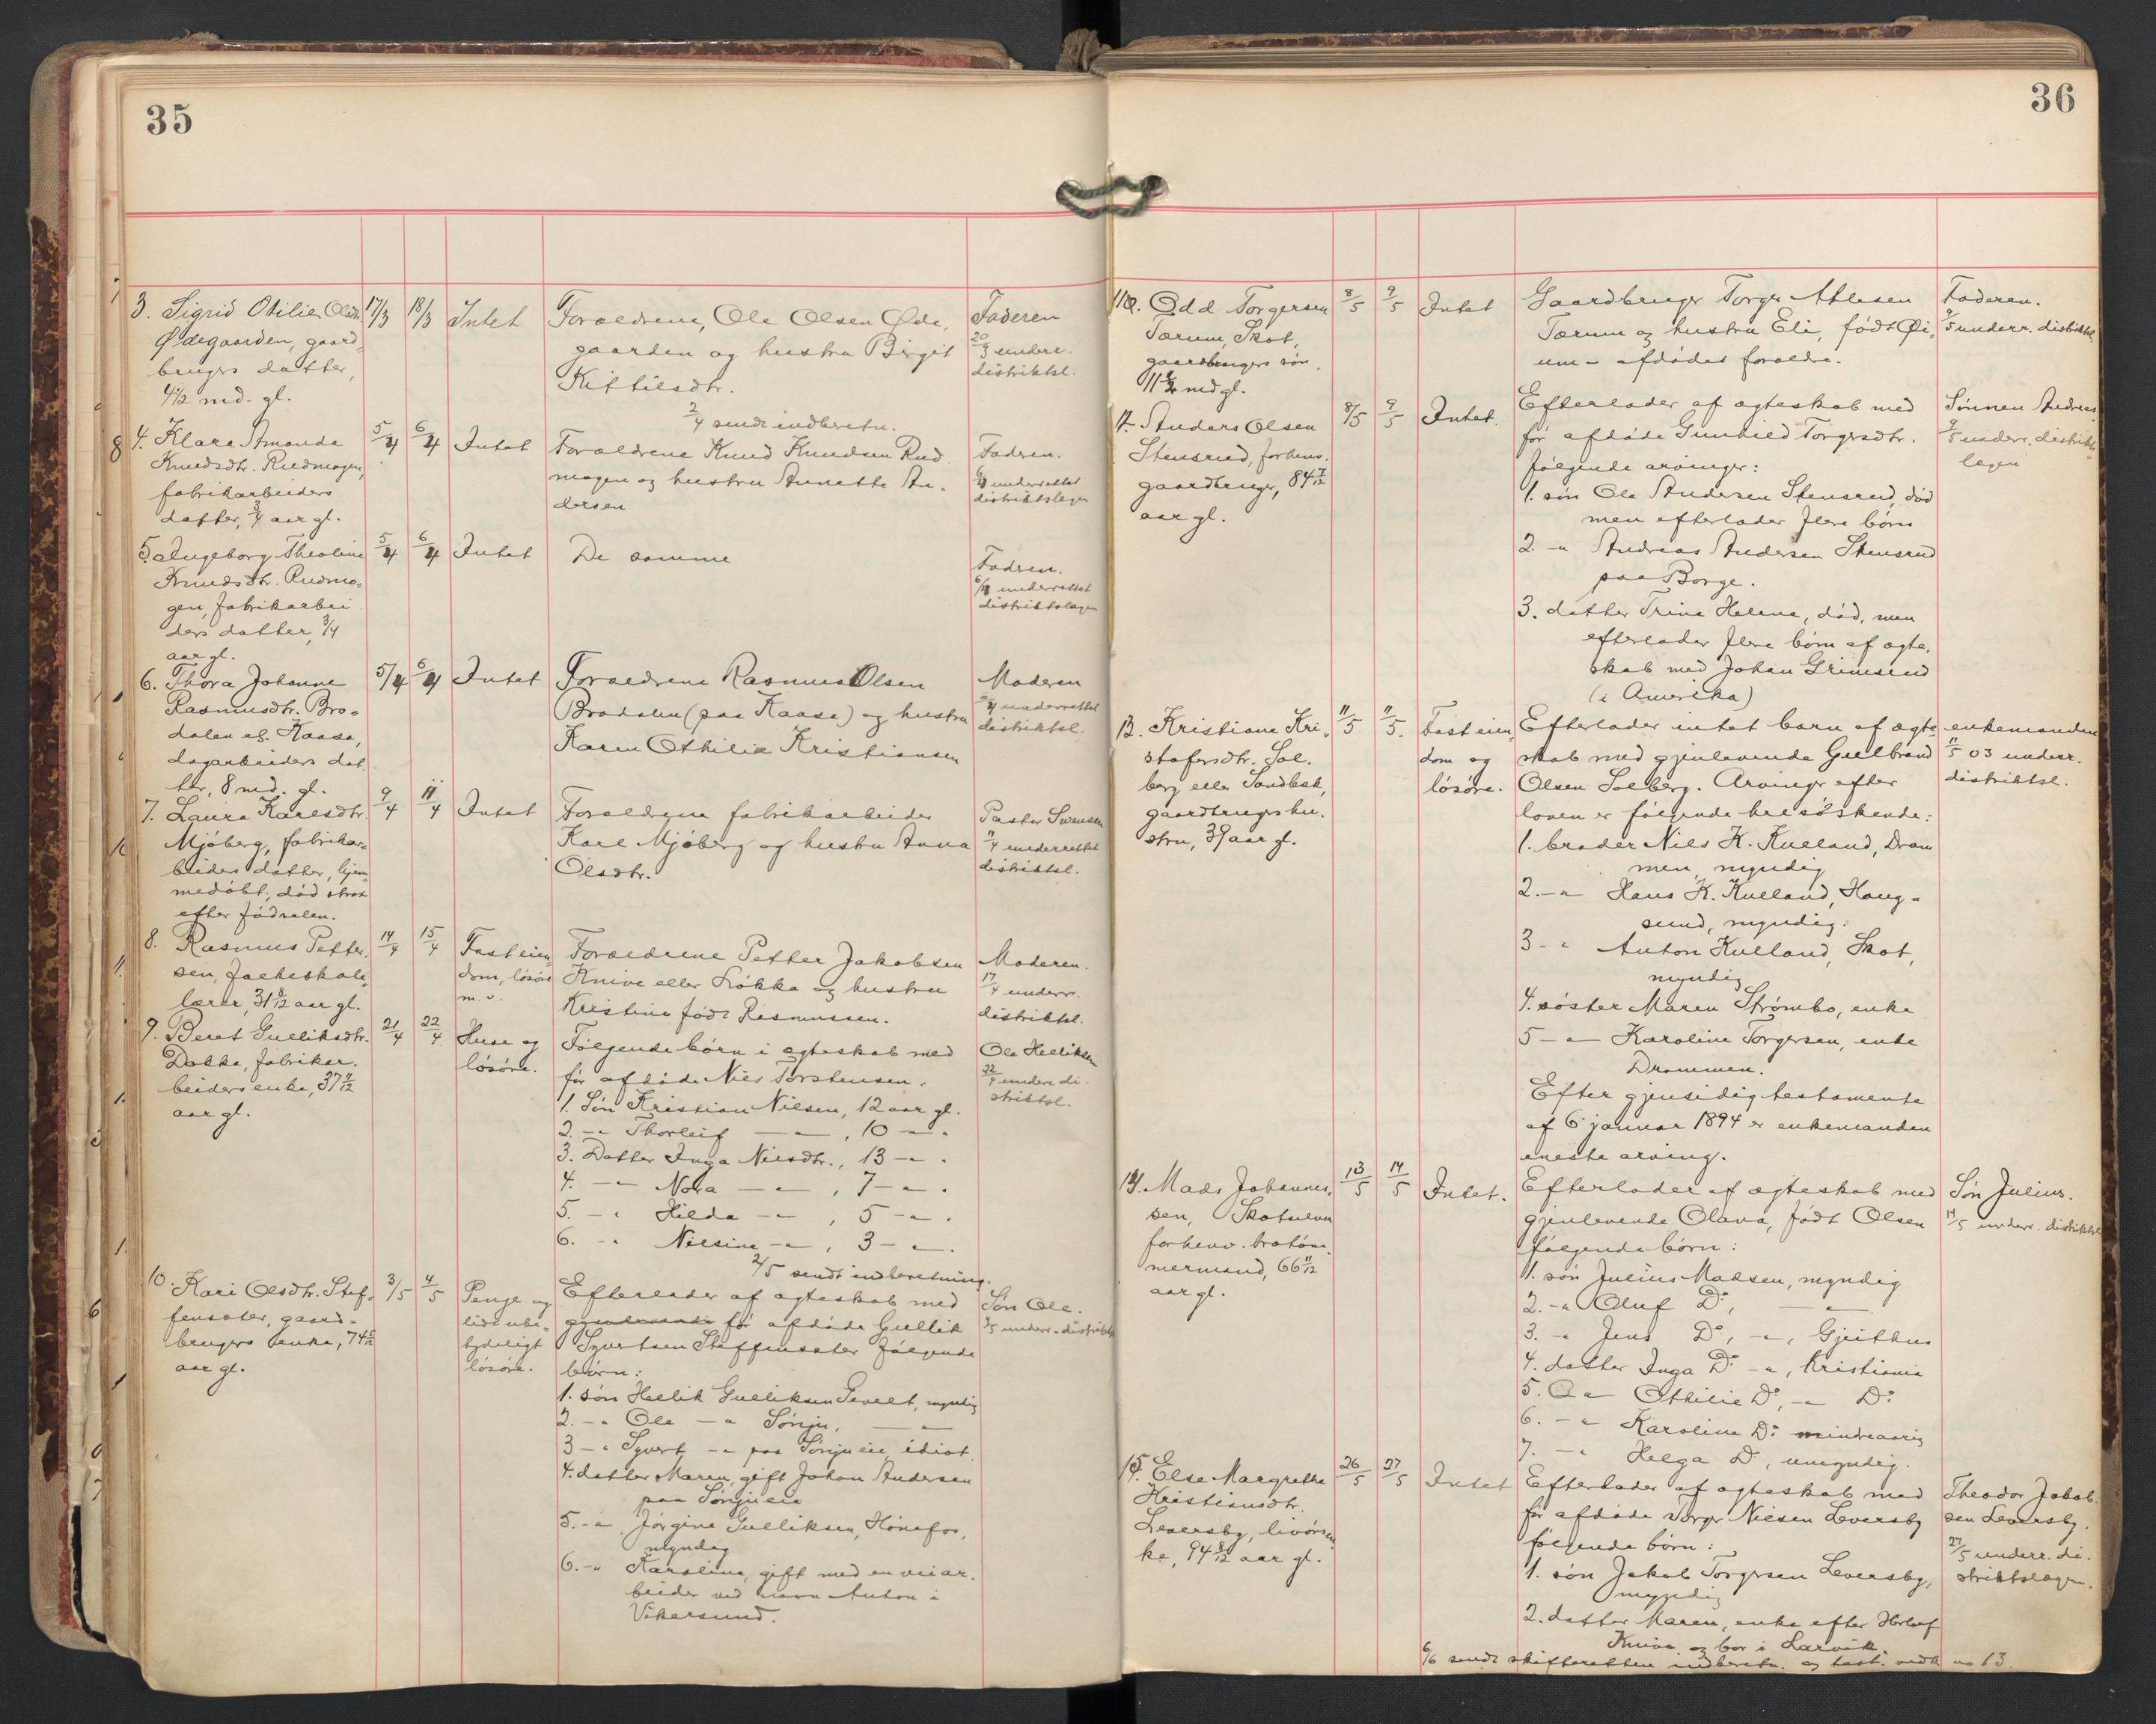 35
3. Sigrid Otilie Olsdtr.
Ødegaarden, gaard-
brugers datter,
4½ md. gl.
17/3
18/3
Intet
Foraeldrene, Ole Olsen Øde,
gaarden og hustru Birgit
Kittilsdtr.
2/4 sendt indberetn.
Faderen
20/3 underr.
distriktsl.
8 4. Klara Amanda
Knudsdtr. Rudmogen,
fabrikarbeiders
datter, 3/4 aar gl.
5/4
6/4
Intet
Foraeldrene Knud Knudsen Rud
mogen og hustru Annette An-
dersen
Faderen.
6/4 underrettet
distriktslægen
5. Ingeborg Theoline
Knudsdtr. Rudmo-
gen, fabrikarbei
ders datter, 3/4
aar gl.
5/4
6/4
Intet
De samme
Faderen.
6/4 underrettet
distriktslægen
6. Thora Johanne
Rasmusdtr. Bro-
dalen el. Kaasa,
dagarbeiders dat
ter, 8 md. gl.
5/4
6/4
Intet
Foraeldrene Rasmus Olsen
Brodalen (paa Kaasa) og hustru
Karen Othilie Kristiansen
Moderen
underrettet
distriktsl.
7. Laura Karlsdtr.
Mjøberg, fabrikar-
beiders datter, hjem
medøbt, død strax
efter fødselen.
9/4
11/4
Intet
Foraeldrene fabrikarbeider
Karl Mjøberg og hustru Anna
Olsdtr.
Pastor Svensen
11/4 underrettet
distriktsl.
8. Rasmus Petter-
sen, folkeskole-
lærer, 31 8/12 aar gl.
14/4
15/4
Fast eien
dom, løsøre
m. v.
Foraeldrene Petter Jakobsen
Knive eller Løkka og hustru
Kristine født Rasmussen.
Moderen.
17/4 underr.
distriktsl.
9. Beret Gulliksdtr.
Dokka, fabrikar-
beiders enke, 37 11/12
aar gl.
21/4
22/4
Huse og
løsøre.
Følgende børn i ægteskab med
før afdøde Nils Torstensen.
1. Søn Kristian Nilsen, 12 aar gl.
2. -"- Thorleif -"-, 10 -"-
3. Datter Inga Nilsdtr., 13 -"-
4. -"- Nora -"-, 7 -"-
5. -"- Hilda -"-, 5 -"-
6. -"- Nilsine -"-, 3 -"-
2/5 sendt indberetning.
Ole Helliksen
22/4 underr. di-
striktsl.
10. Kari Olsdtr. Stef-
fensæter, gaard-
brugers enke, 74 5/12
aar gl.
3/5
4/5
Penge og
lidt ube-
tydeligt
løsøre.
Efterlader af ægteskab med
gjenlevende før afdøde Gullik
Syvertsen Steffensæter følgende
børn:
1. søn Hellik Gulliksen Gevelt, myndig
2. -"- Ole -"- Sønju, -"-
3 -"- Syvert -"- paa Sønjueie, idiot.
4. datter Maren, gift Johan Andersen
paa Sønjueie
5. -"- Jørgine Gulliksen, Hønefos,
myndig
6. -"- Karoline, gift med en veiar-
beider ved navn Anton i
Vikersund.
Søn Ole.
4/5 underr. distriktsl.
36
11. Odd Torgersen
Tærum, Skot,
gaardbrugers søn,
md gl.
8/5
9/5
Intet
Gaardbruger Torger Atlesen
Tærum og hustru Eli, født Øi-
um - afdødes foraeldre.
Faderen.
9/5 underr. distriktsl.
12. Anders Olsen
Stensrud, forhenv.
gaardbruger, 84 7/12
aar gl.
8/5
9/5
Intet.
Efterlader af ægteskab med
før afdøde Gunhild Torgersdtr.
følgende arvinger:
1. søn Ole Andersen Stensrud, død
men efterlader flere børn
2. -"- Andreas Andersen Stensrud
paa Borge.
3. datter Trine Helene, død, men
efterlader flere børn af ægte-
skab med Johan Grimsrud
(i Amerika)
Sønnen Andreas
9/5 underr. distrikts-
lægen
13. Kristiane Kri-
stofersdtr. Sol-
berg eller Sandbek,
gaardbrugers hu-
stru, 39 aar gl.
11/5
11/5.
Fast eien-
dom og
løsøre.
Efterlader intet barn af ægte
skab med gjenlevende Gulbrand
Olsen Solberg. Arvinger efter
loven er følgende helsøskende:
1. broder Nils K. Kulland, Dram
men, myndig
2. -"- Hans K. Kulland, Haug-
sund, myndig.
3 -"- Anton Kulland, Skot,
myndig
4. søster Maren Strømbo, enke
5 -"- Karoline Torgersen, enke
Drammen.
Efter gjensidig testamente
af 6. januar 1894 er enkemanden
eneste arving.
enkemanden
11/5 03 underr.
distriktsl.
14. Mads Johannes-
sen, Skotselven
forhenv. brotøm-
mermand, 66 11/12
aar gl.
13/5
14/5
Intet.
Efterlader af ægteskab med
gjenlevende Olava, født Olsen
følgende børn:
1. søn Julius Madsen, myndig
2. -"- Oluf Do, -"-
3. -"- Jens Do, -"-, Gjeithus
4. datter Inga Do -"-, Kristiania
5. -"- Othilie Do, -"- Do
6. -"- Karoline Do mindreaarig
7. -"- Helga Do, umyndig.
Søn Julius.
14/5 underr. distriktsl.
15. Else Margrethe
Kristiansdtr.
Leversby, livøren
ke, 94 8/12 aar gl.
26/5
27/5
Intet
Efterlader af ægteskab med
før afdøde Torger Nilsen Leversby
følgende børn:
1. søn Jakob Torgersen Leversby,
myndig
2. datter Maren, enke efter
Knive og bor i Larvik.
Theodor Jakob-
sen Leversby.
27/5 underr. di-
striktslægen.
6/6 sendt skifteretten indberetn. og test. vedk no 13.